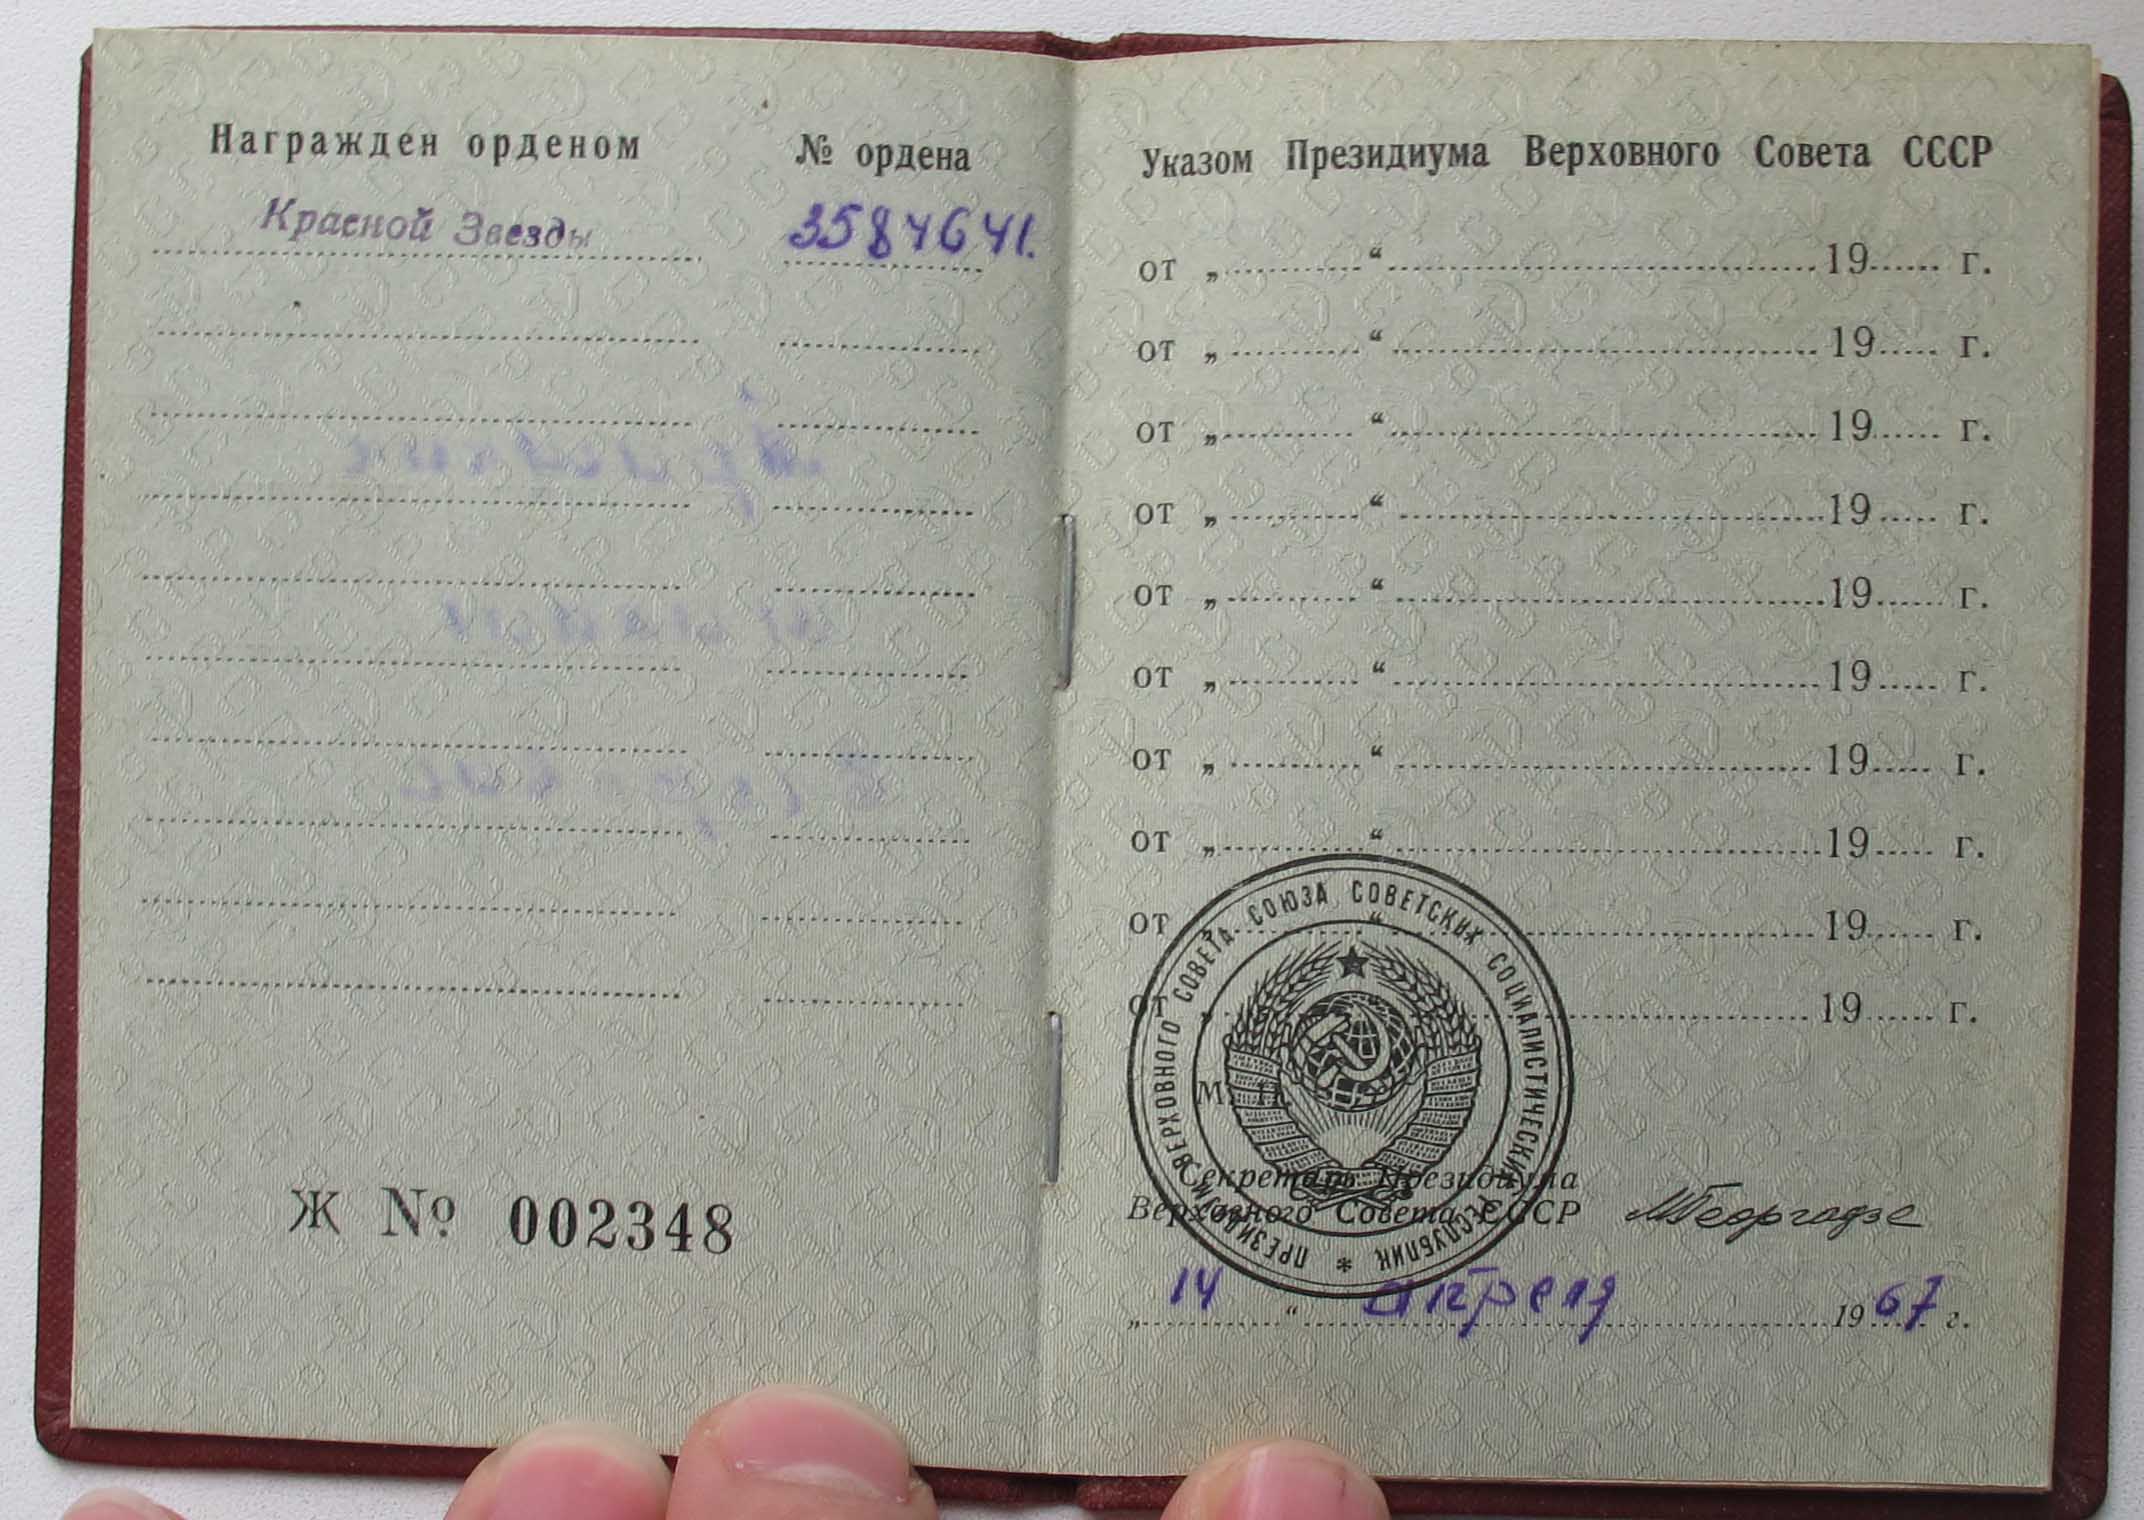 Награжден орденом № ордена
Красной Звезды 3584641.
Ж № 002348
Указом Президиума Верховного Совета СССР
от „ “ 19 г.
от „ “ 19 г.
от „ “ 19 г.
от „ “ 19 г.
от „ “ 19 г.
от „ “ 19 г.
от „ “ 19 г.
от „ “ 19 г.
от „ “ 19 г.
от „ “ 19 г.
М. П.
ПРЕЗИДИУМ ВЕРХОВНОГО СОВЕТА СОЮЗА СОВЕТСКИХ СОЦИАЛИСТИЧЕСКИХ РЕСПУБЛИК *
Секретарь Президиума
Верховного Совета СССР МГеоргадзе
„ 14 “ апреля 1967 г.